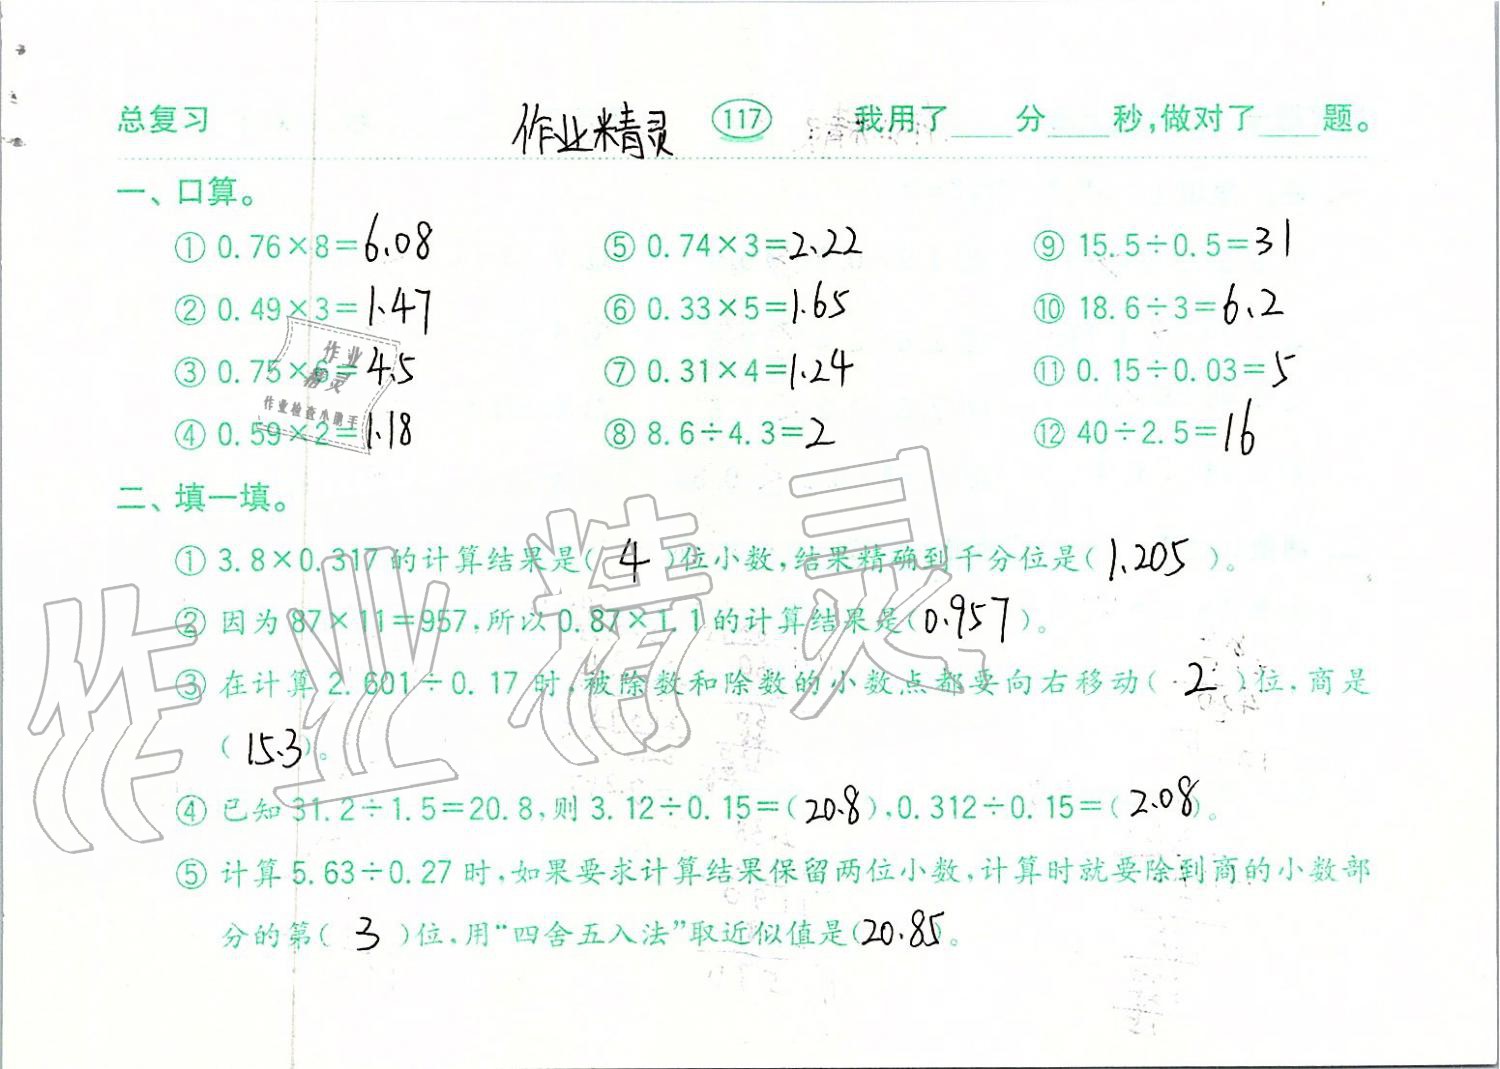 总复习 作业精灵 117 我用了____分____秒,做对了____题。
一、口算。
① 0.76×8=6.08 ⑤ 0.74×3=2.22 ⑨ 15.5÷0.5=31
② 0.49×3=1.47 ⑥ 0.33×5=1.65 ⑩ 18.6÷3=6.2
③ 0.75×6=4.5 ⑦ 0.31×4=1.24 ⑪ 0.15÷0.03=5
④ 0.59×2=1.18 ⑧ 8.6÷4.3=2 ⑫ 40÷2.5=16
作业
精灵
作业检查小助手
二、填一填。
① 3.8×0.317的计算结果是( 4 )位小数,结果精确到千分位是( 1.205 )。
② 因为87×11=957,所以0.87×1.1的计算结果是(0.957)。
③ 在计算2.601÷0.17时,被除数和除数的小数点都要向右移动( 2 )位,商是
( 15.3)。
④ 已知31.2÷1.5=20.8,则3.12÷0.15=(20.8),0.312÷0.15=(2.08)。
⑤ 计算5.63÷0.27时,如果要求计算结果保留两位小数,计算时就要除到商的小数部
分的第( 3 )位,用“四舍五入法”取近似值是(20.85)。
作业精灵